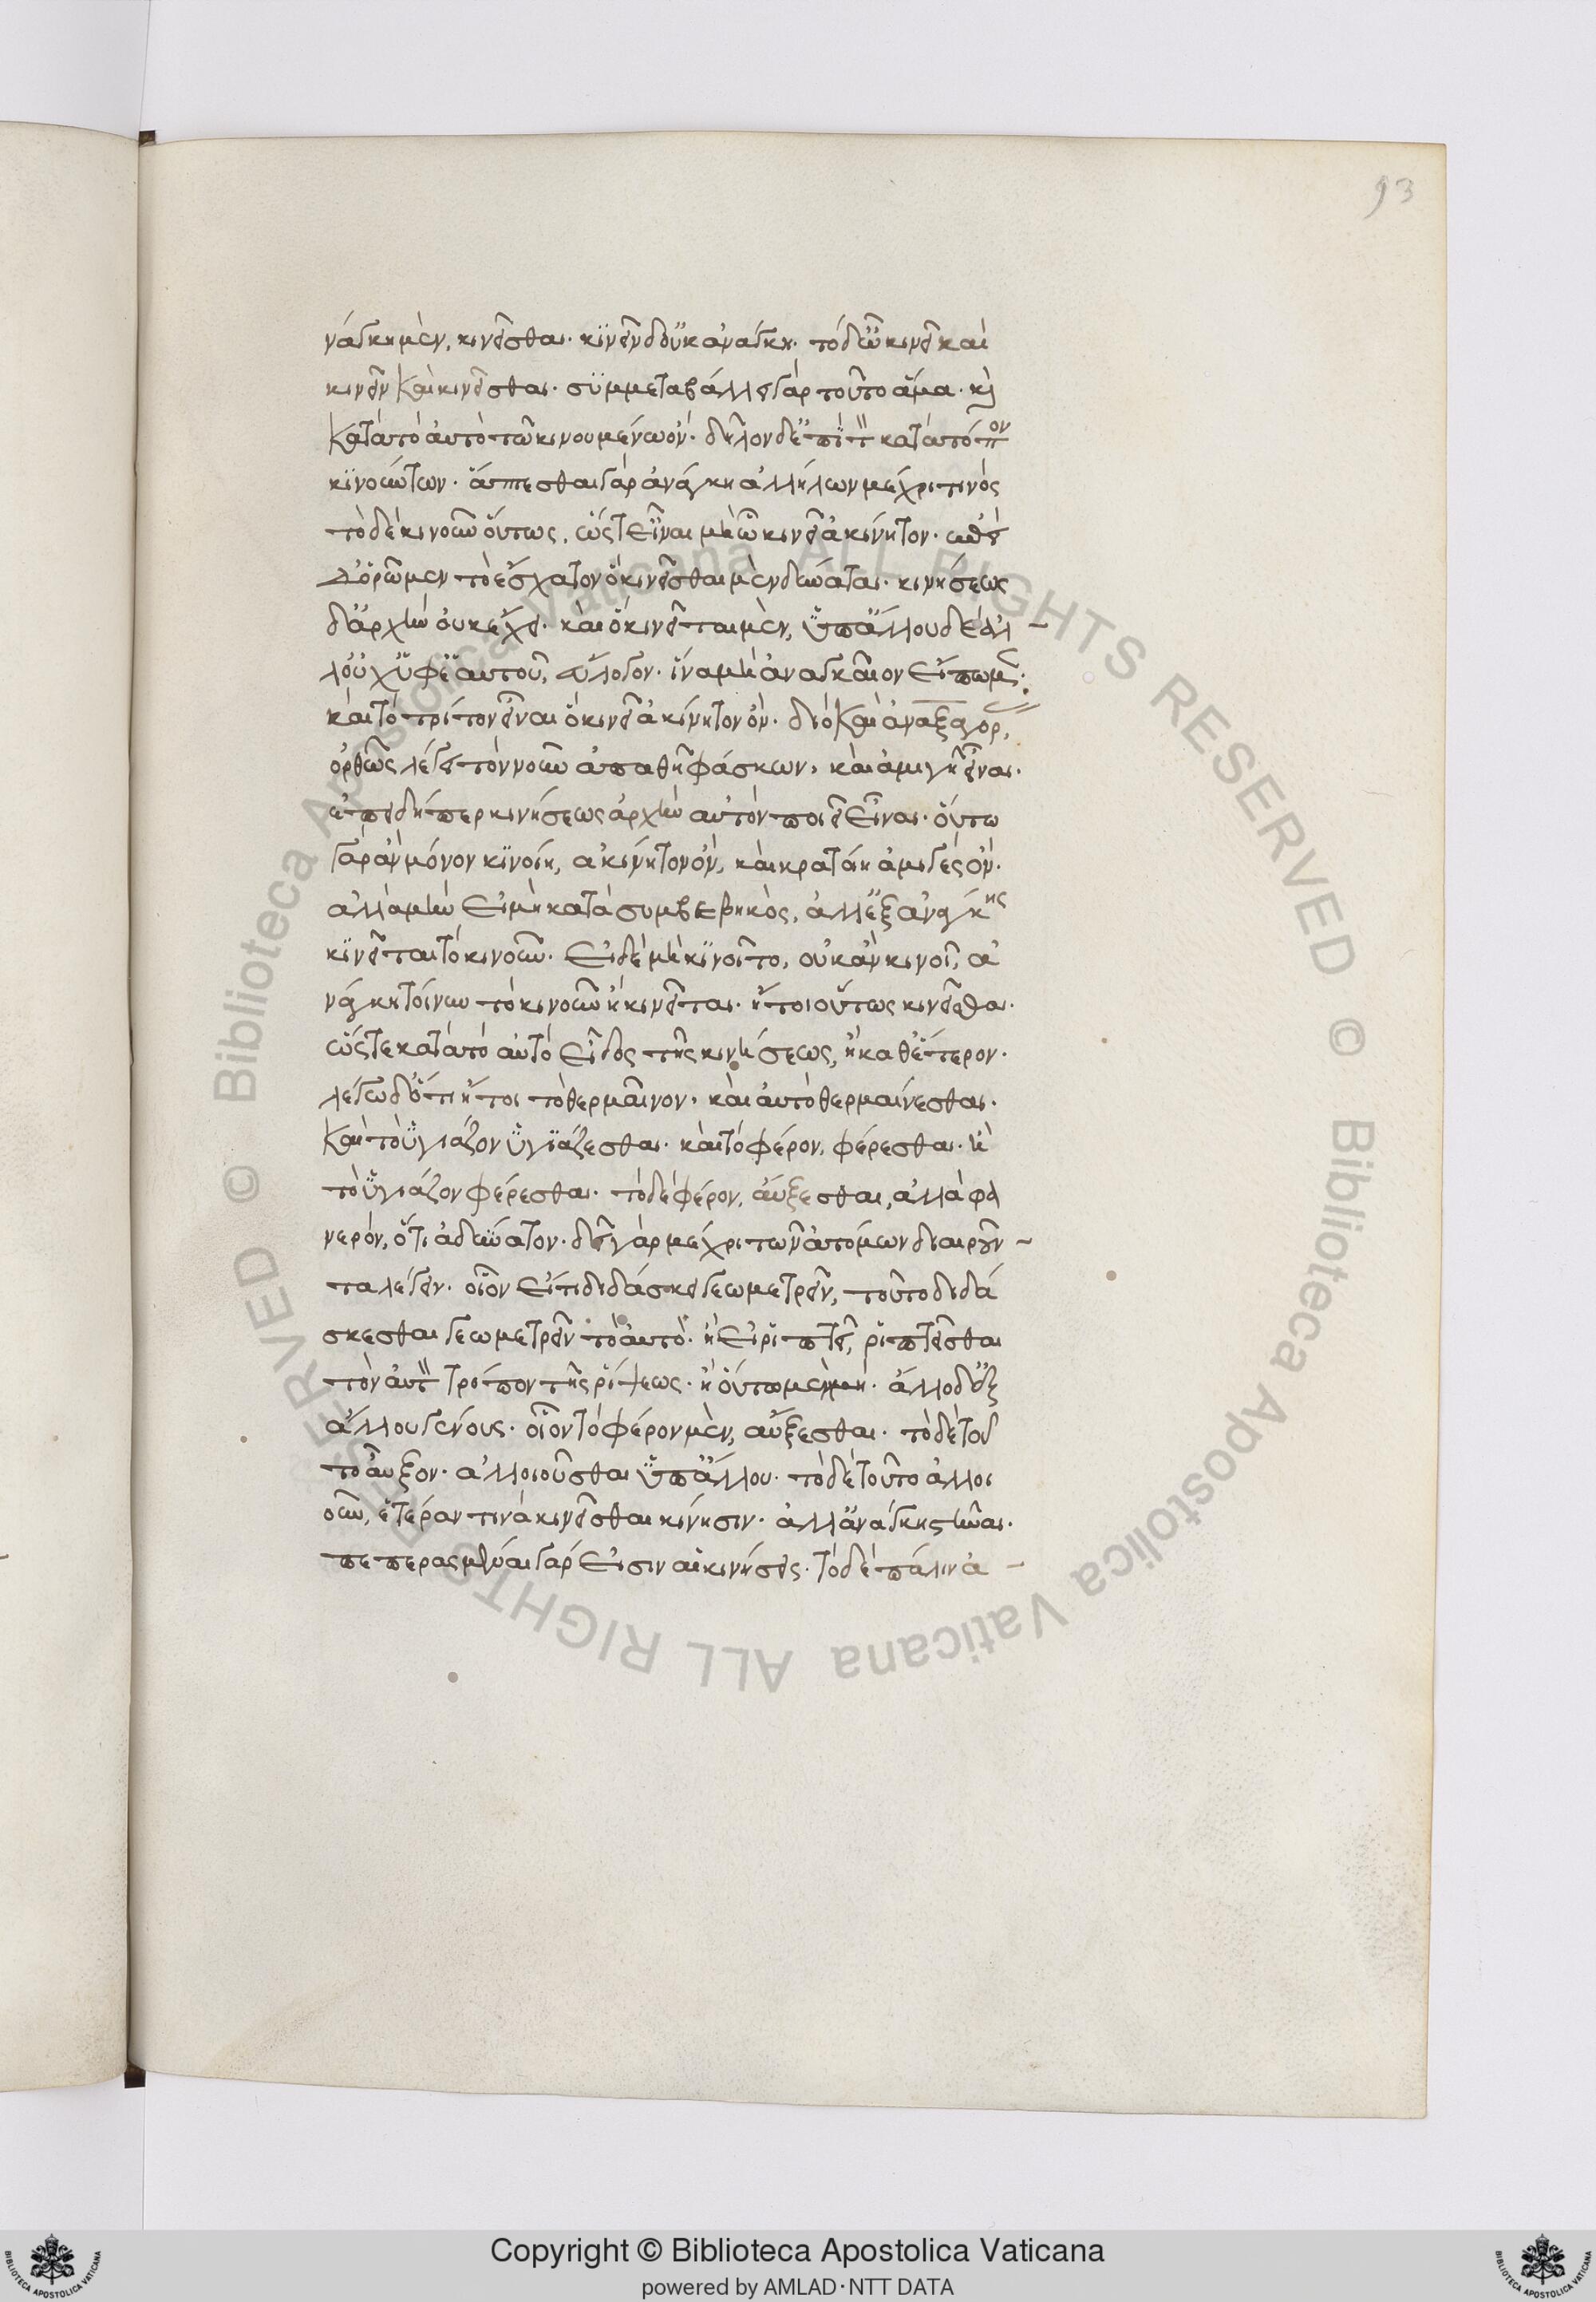 93
νάγκη μὲν, κινεῖσθαι· κϊνεῖν δ' οὔκ ἀνάγκη· τὸ δ' ὧ κινεῖ καὶ
κινεῖν καὶ κινεῖσθαι· σϋμμεταβάλλει γὰρ τοῦτο ἅμα· κ̀
κατὰ τὸ ἀυτὸ τῶ κινουμένω ὄν· δῆλον δ' ἐπὶ τ κατὰ τόπον
κϊνούντων· ἅπτεσθαι γὰρ ἀνάγκη ἀλλήλων μέχρι τινός
τὸ δὲ κινοῦν οὕτως, ὥστ' εἶναι μὴ ὧ κινεῖ ἀκίνητον·
ὁρῶμεν τὸ ἔσχατον ὃ κινεῖσθαι μὲν δύναται· κινήσεως
δ' ἀρχὴν ὀυκ ἔχει· καὶ ὃ κινεῖται μὲν, ὕπ' ἄλλου δὲ ἀλ
λ' οὐχ ὕφ' ἑαυτοῦ, εὔλογον· ἵνα μὴ ἀναγκαῖον εἴπωμεν·
καὶ τὸ τρίτον εἶναι ὃ κινεῖ ἀκίνητον ὄν· διὸ καὶ ἀναξαγόρ,
ὀρθῶς λέγει τὸν νοῦν ἀπαθῆ φάσκων, καὶ ἀμιγῆ εἶναι·
ἐπειδήπερ κινήσεως ἀρχὴν αὐτὸν ποιεῖ εἶναι· οὕτω
γὰρ ἂν μόνον κϊνοίη, ἀκίνητον ὄν, καὶ κρατοίη ἀμιγὲς ὄν·
ἀλλὰ μὴν εἰ μὴ κατὰ συμβεβηκὸς, ἀλλ' ἐξ ἀνάγκης
κϊνεῖται τὸ κινοῦν· εἰ δὲ μὴ κϊνοῖτο, οὐκ ἂν κινοῖ, ἀ
νάγκη τοίνυν τὸ κινοῦν ἧ κινεῖται· ἤτοι οὕτως κινεῖσθαι·
ὥς τε κατὰ τὸ αὐτὸ εἶδος τῆς κινήσεως, ἢ καθ' ἕτερον·
λέγω δ' ὅτι ἤτοι τὸ θερμαῖνον, καὶ ἀυτὸ θερμαίνεσθαι·
καὶ τὸ ὑγιάζον ὑγϊάζεσθαι· καὶ τὸ φέρον, φέρεσθαι· ἢ
τὸ ὑγιάζον φέρεσθαι· τὸ δὲ φέρον, ἀύξεσθαι, ἀλλὰ φα
νερόν, ὅτι ἀδύνατον· δεῖ γὰρ μέχρι τῶν ἀτόμων διαιροῦν
τα λέγειν· οἷον εἴ τι διδάσκει γεωμετρεῖν, τοῦτο διδά
σκεσθαι γεωμετρεῖν τὸ ἀυτὸ· ἢ εἰ ῥίπτεῖ, ῥίπτεῖσθαι
τὸν ἀυτ τρόπον τῆς ῥίψεως· ἢ ὅυτω μὲν μή· ἄλλο δ' ἐξ
ἄλλου γένους· οἷον τὸ φέρον μὲν, αὔξεσθαι· τὸ δὲ τοῦ
το ἀυξον· ἀλλοιοῦσθαι ὕπ' ἄλλου· τὸ δὲ τοῦτο ἀλλοι
οῦν, ἑτέραν τινὰ κινεῖσθαι κίνησιν· ἀλλ' ἀνάγκη στῆναι·
πεπερασμέναι γάρ εἰσιν αἱ κινήσεις· τὸ δὲ πάλιν ἀ
Copyright © Biblioteca Apostolica Vaticana
powered by AMLAD·NTT DATA